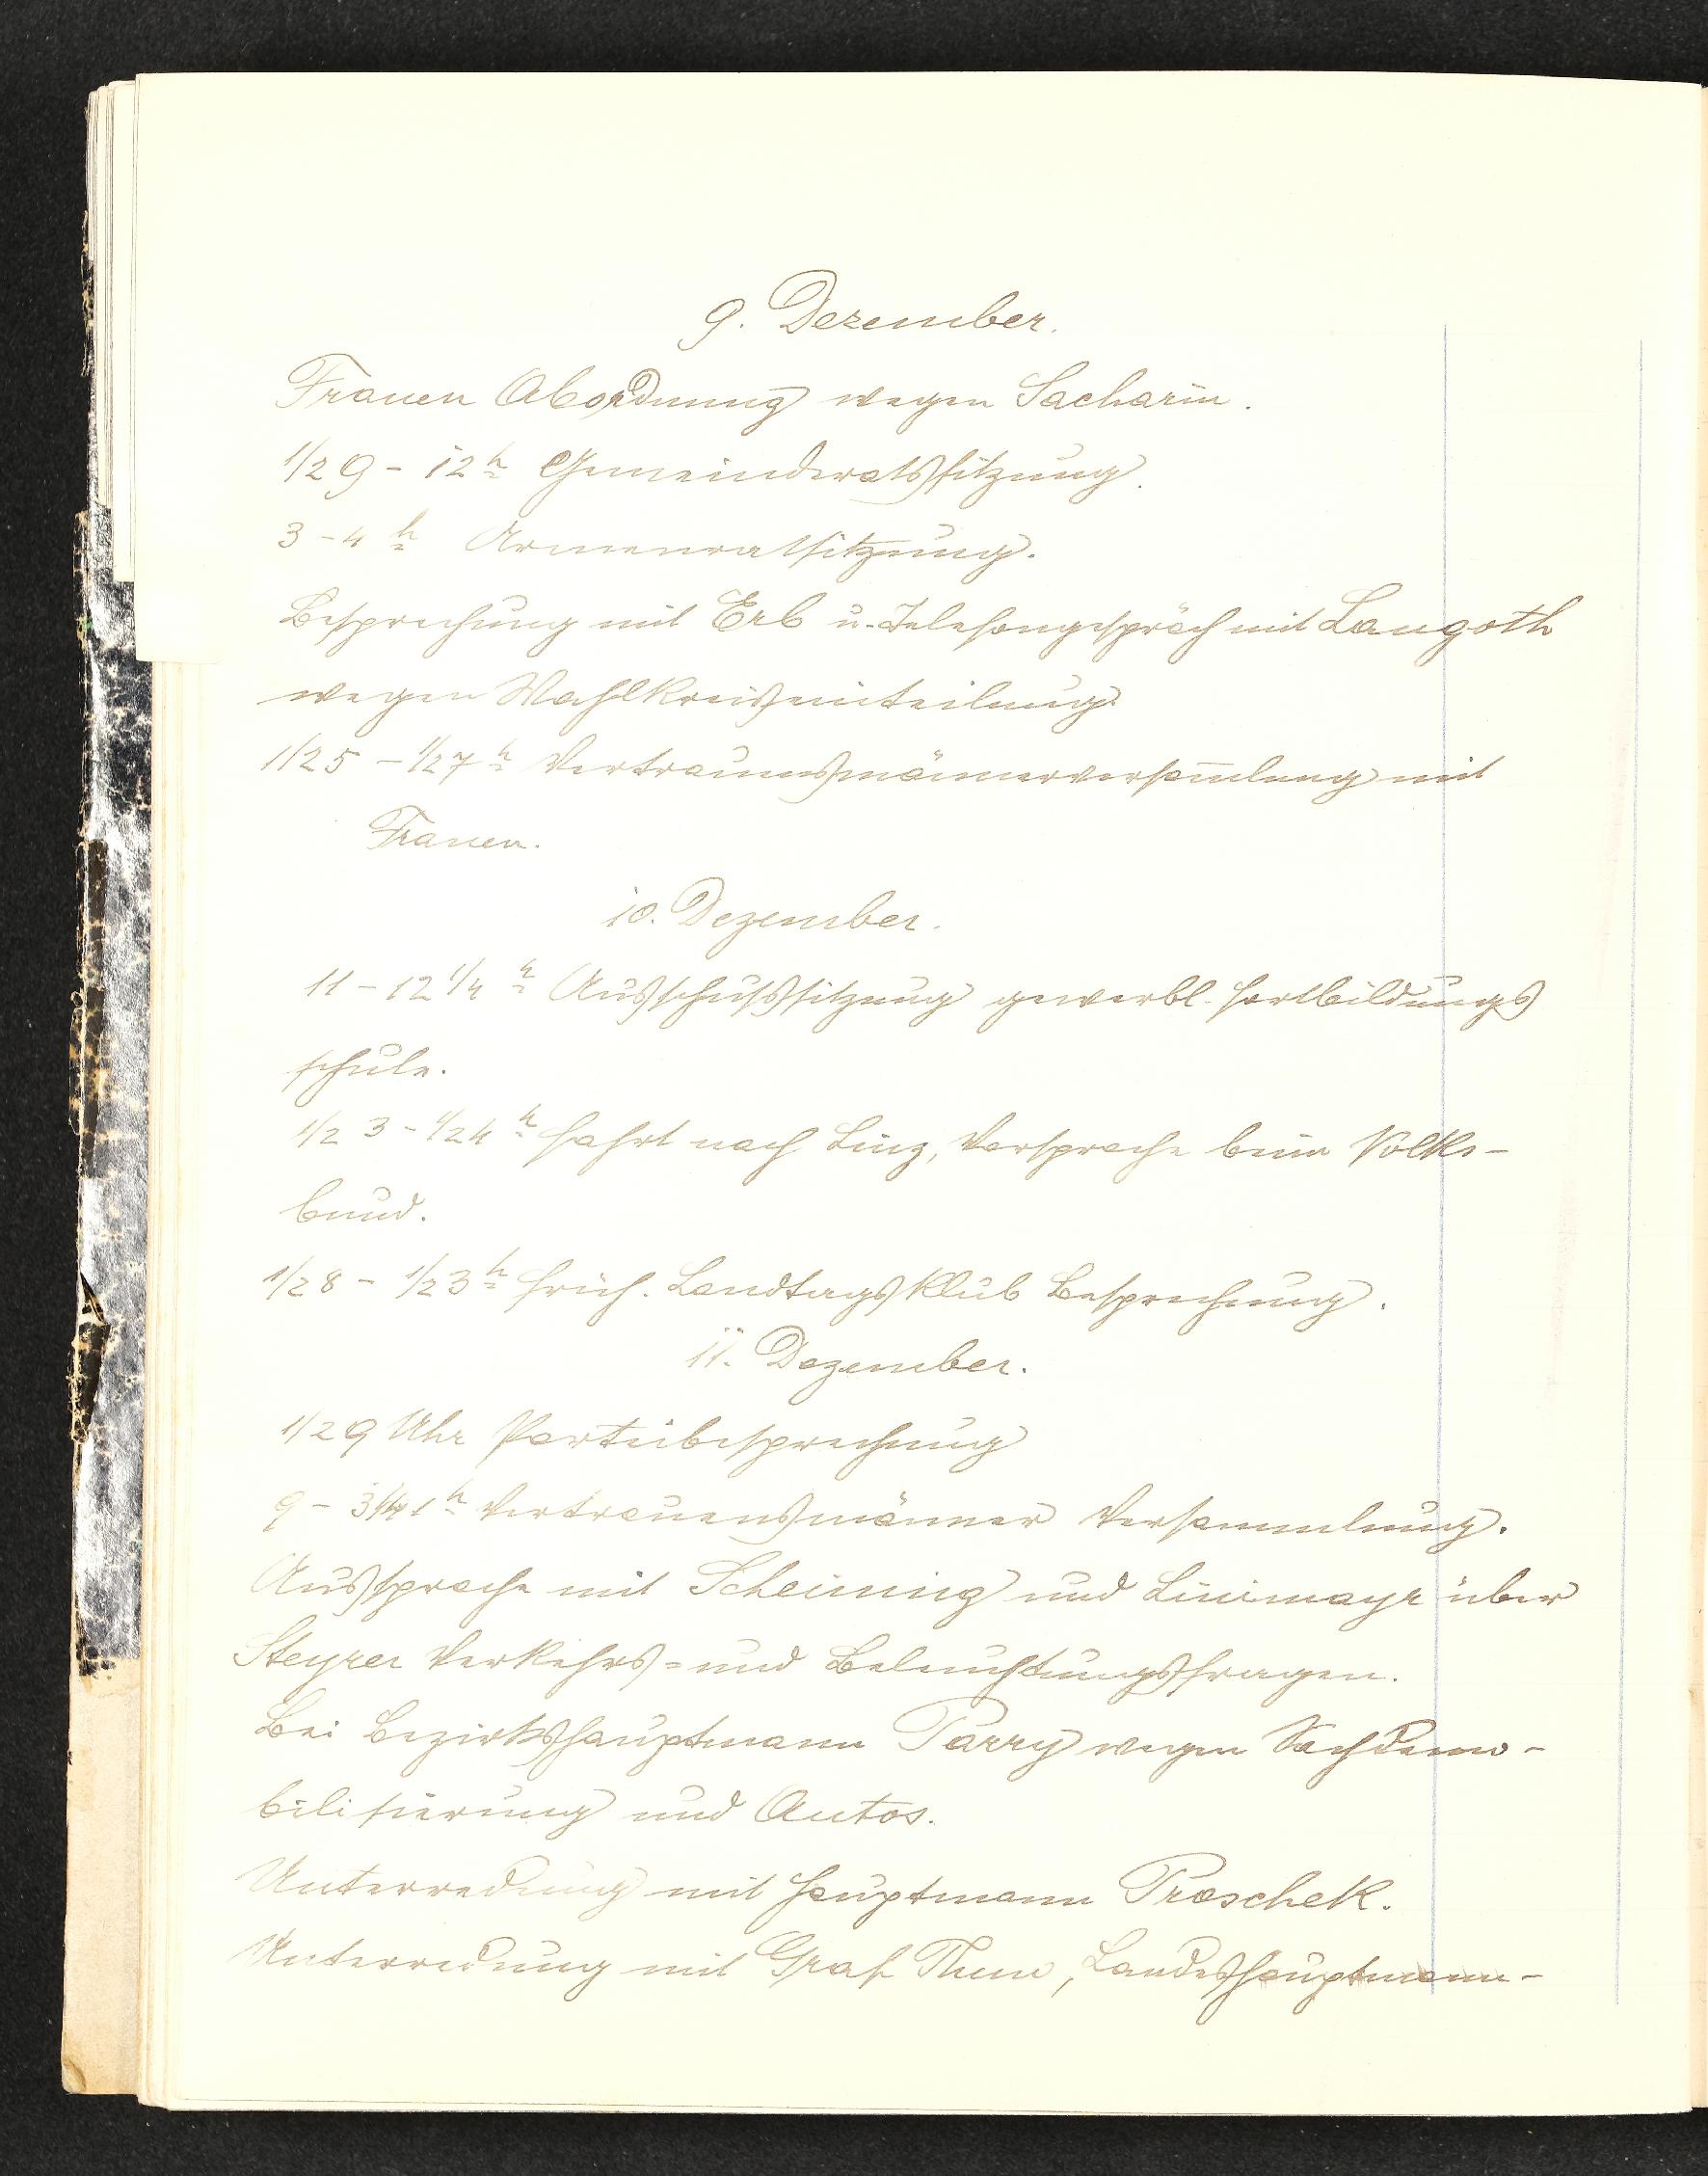 9. Dezember.
Frauen Abordnung wegen Sacharin.
1/2 9 - 12 h Gemeinderatssitzung.
3 - 4 h Armenratsitzung.
Besprechung mit Erb u. Telefongespräch mit Langoth
wegen Wahlkreiseinteilung.
1/2 5 - 1/2 7 h Vertrauensmännerversam̅lung mit
Frauen.
10. Dezember.
11 - 12 1/4 h Ausschußsitzung gewerbl. Fortbildungs
schule.
1/2 3 - 1/2 4 h Fahrt nach Linz, Vorsprache beim Volks-
bund.
1/2 8 - 1/2 3 h früh. Landtagsklub Besprechung.
11. Dezember.
1/2 9 Uhr Parteibesprechung
9 - 3/4 1 h Vertrauensmänner Versammlung.
Aussprache mit und über
Steyrer Verkehrs- und Beleuchtungsfragen.
Bei Bezirkshauptmann Parry wegen Sachdemo-
bilisierung und Autos.
Unterredung mit Hauptmann Praschek.
Unterredung mit Graf Thun, Landeshauptmann-